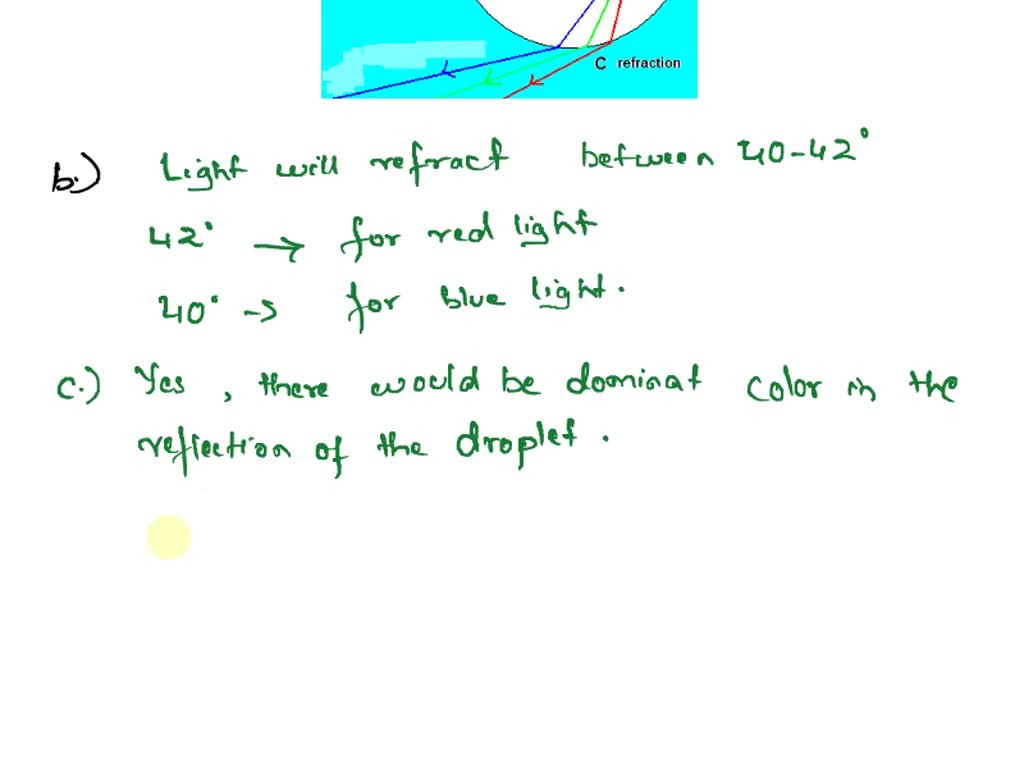 C refraction
b.) Light will refract between 40-42°
42° → for red light
40° → for blue light.
c.) Yes, there would be dominat color in the
reflection of the droplet.